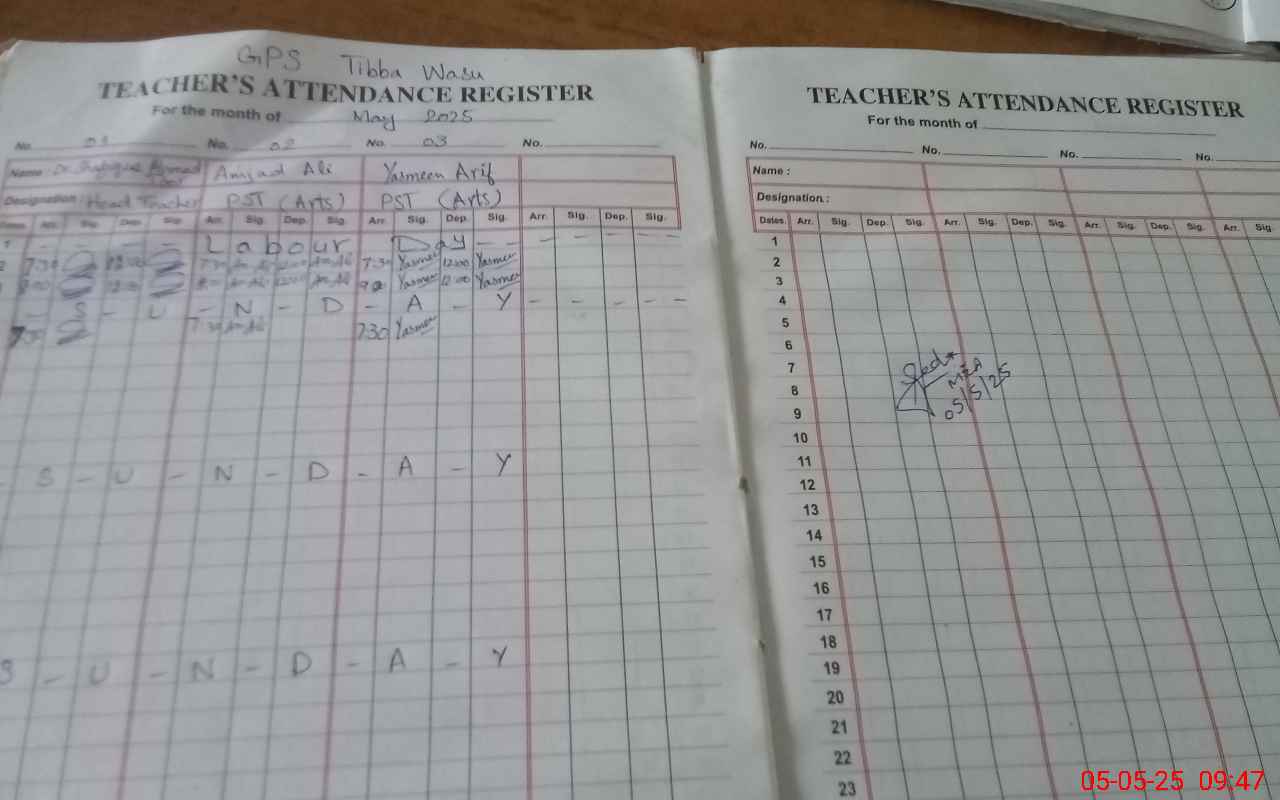 GPS Tibba Wasu
TEACHER'S ATTENDANCE REGISTER
For the month of May 2025
No. 01 No. 02 No. 03 No.
Name : Dr. Ahmad Amjad Ali Yasmeen Arif
Designation : Head Teacher PST (Arts) PST (Arts)
Dates Arr. Sig. Dep. Sig. Arr. Sig. Dep. Sig. Arr. Sig. Dep. Sig. Arr. Sig. Dep. Sig.
1 - - - - Labour Day - - - - - -
2 7:30 12:00 7:30 Am Ali 12:00 Am Ali 7:30 Yasmeen 12:00 Yasmeen
8:00 12:00 8:00 Am Ali 12:00 Am Ali Yasmeen 12:00 Yasmeen
- S - U - N - D - A - Y - - - -
7:30 7:30 Am Ali 7:30 Yasmeen
- S - U - N - D - A - Y
S - U - N - D - A - Y
TEACHER'S ATTENDANCE REGISTER
For the month of
No. No. No. No.
Name :
Designation :
Dates. Arr. Sig. Dep. Sig. Arr. Sig. Dep. Sig. Arr. Sig. Dep. Sig. Arr. Sig.
1
2
3
4
5
6
7
8
9
MEA
05/5/25
10
11
12
13
14
15
16
17
18
19
20
21
22
23
05-05-25 09:47